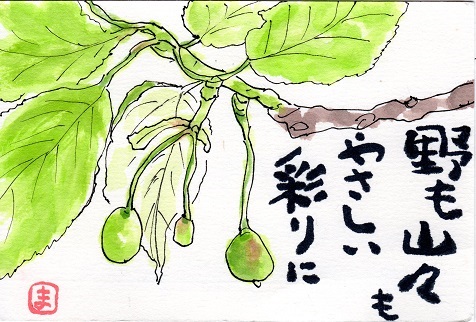 野も山々も
やさしい
彩りに
ま